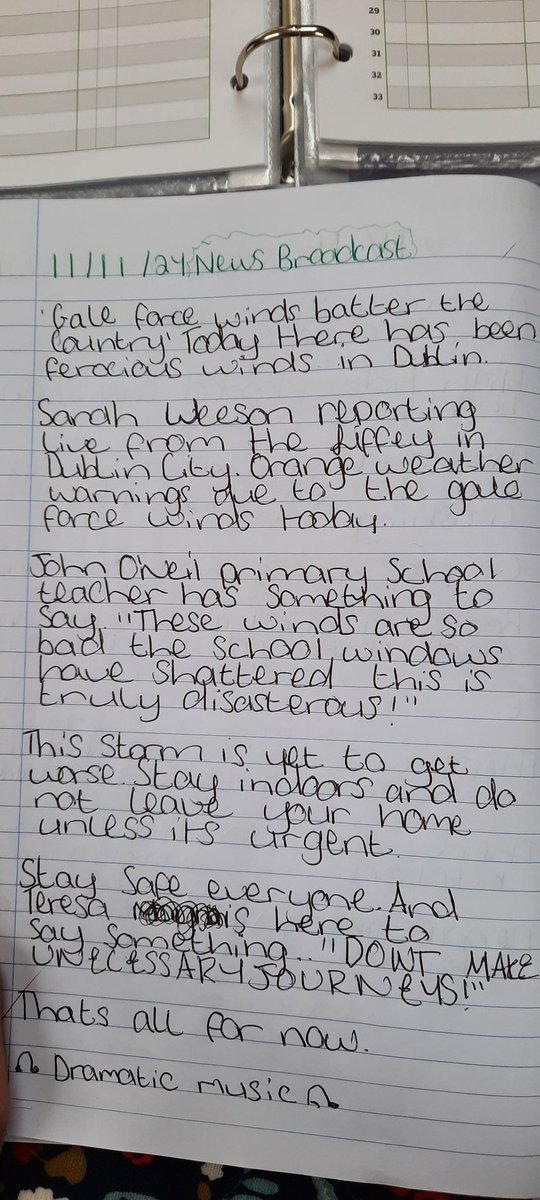 29
30
31
32
33
11/11/24 News Broadcast
'Gale force winds batter the
Country' Today there has been
ferocious winds in Dublin.
Sarah Weeson reporting
live from the Liffey in
Dublin City. Orange weather
warnings due to the gale
force winds today.
John O'Neil primary School
teacher has something to
say. "These winds are so
bad the school windows
have shattered, this is
truly disasterous!"
This storm is yet to get
worse. Stay indoors and do
not leave your home
unless its urgent.
Stay safe everyone. And
Teresa is here to
say something.. "DONT MAKE
UNECESSARY JOURNEYS!"
Thats all for now.
Dramatic music